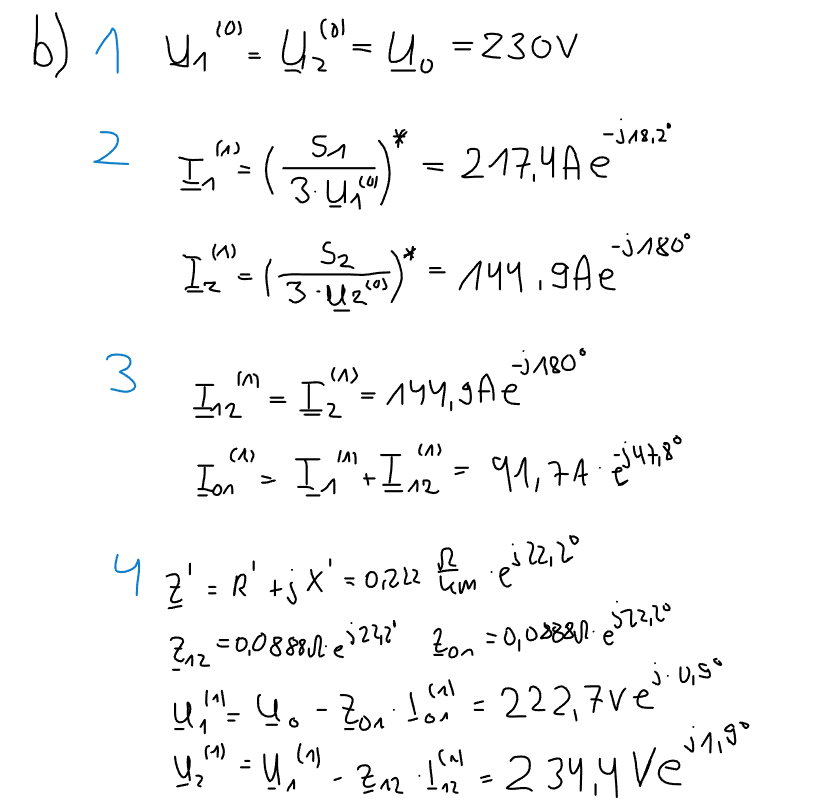 b) 1 U₁⁽⁰⁾ = U₂⁽⁰⁾ = U₀ = 230V
2 I₁⁽¹⁾ = (S1 / 3·U₁⁽⁰⁾)* = 217,4A e^-j18,2°
I₂⁽¹⁾ = (S₂ / 3·U₂⁽⁰⁾)* = 144,9A e^-j180°
3 I₁₂⁽¹⁾ = I₂⁽¹⁾ = 144,9A e^-j180°
I₀₁⁽¹⁾ = I₁⁽¹⁾ + I₁₂⁽¹⁾ = 91,7A · e^-j47,8°
4 Z' = R' + jX' = 0,222 Ω/km · e^j22,2°
Z₁₂ = 0,0888Ω · e^j22,2° Z₀₁ = 0,0888Ω · e^j22,2°
U₁⁽¹⁾ = U₀ - Z₀₁ · I₀₁⁽¹⁾ = 222,7V e^j·0,9°
U₂⁽¹⁾ = U₁⁽¹⁾ - Z₁₂ · I₁₂⁽¹⁾ = 234,4 V e^j1,9°